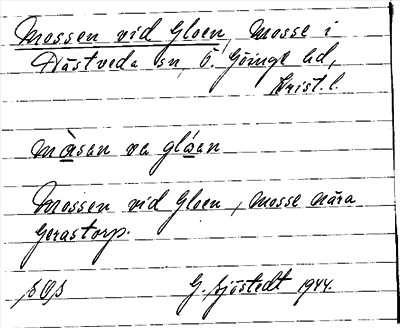 Mossen vid Gloen, Mosse i
Västveda sn, Ö. Göinge hd,
Krist. l.
måsan ve glåen
Mossen vid Gloen, mosse nära
Gerastorp.
G. Sjöstedt 1944.